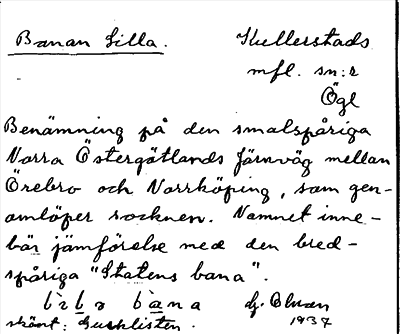 Banan Lilla.
Kullerstads
mfl. sn:r
Ögl
Benämning på den smalspåriga
Norra Östergötlands Järnväg mellan
Örebro och Norrköping, som gen-
omlöper socknen. Namnet inne-
bär jämförelse med den bred-
spåriga "Statens bana".
bana
1937
skämt: